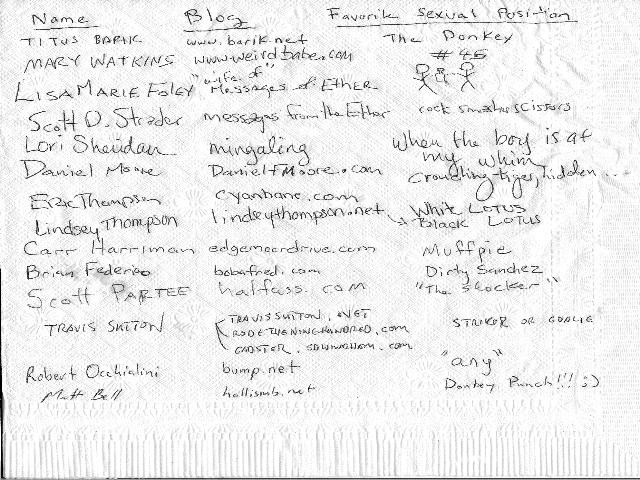 Name Blog Favorite Sexual Position
TITUS BARIK www.barik.net The Donkey
MARY WATKINS www.weirdbabe.com #45
LISA MARIE FOLEY "wife of" Messages of ETHER
Scott D. Strader messages from the Ether rock smashes scissors
Lori Sheridan mingaling When the boy is at my whim
Daniel Moore DanielFMoore.com Crouching tiger, hidden...
Eric Thompson cyanbane.com
Lindsey Thompson lindseythompson.net White LOTUS
Black LOTUS
Carr Harriman edgemoordrive.com Muffpie
Brian Federico bobafred.com Dirty Sanchez
Scott PARTEE halfass.com "The Shocker"
TRAVIS SUTTON TRAVISSUTTON.NET STRIKER OR GOALIE
RODETHENINEHUNDRED.com
Robert Occhialini bump.net "any"
Matt Bell hallismb.net Donkey Punch!!! ;)